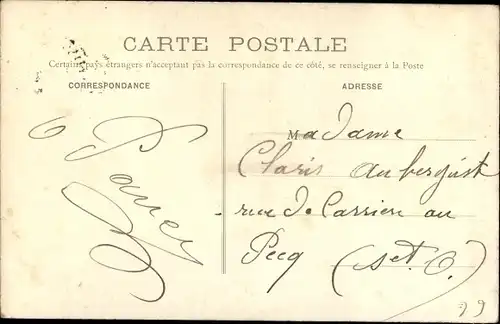 CARTE POSTALE
Certains pays étrangers n'acceptant pas la correspondance de ce côté, se renseigner à la Poste
CORRESPONDANCE
ADRESSE
Madame
Claris aubergiste
rue de Carrière au
Pecq (Set. O.)